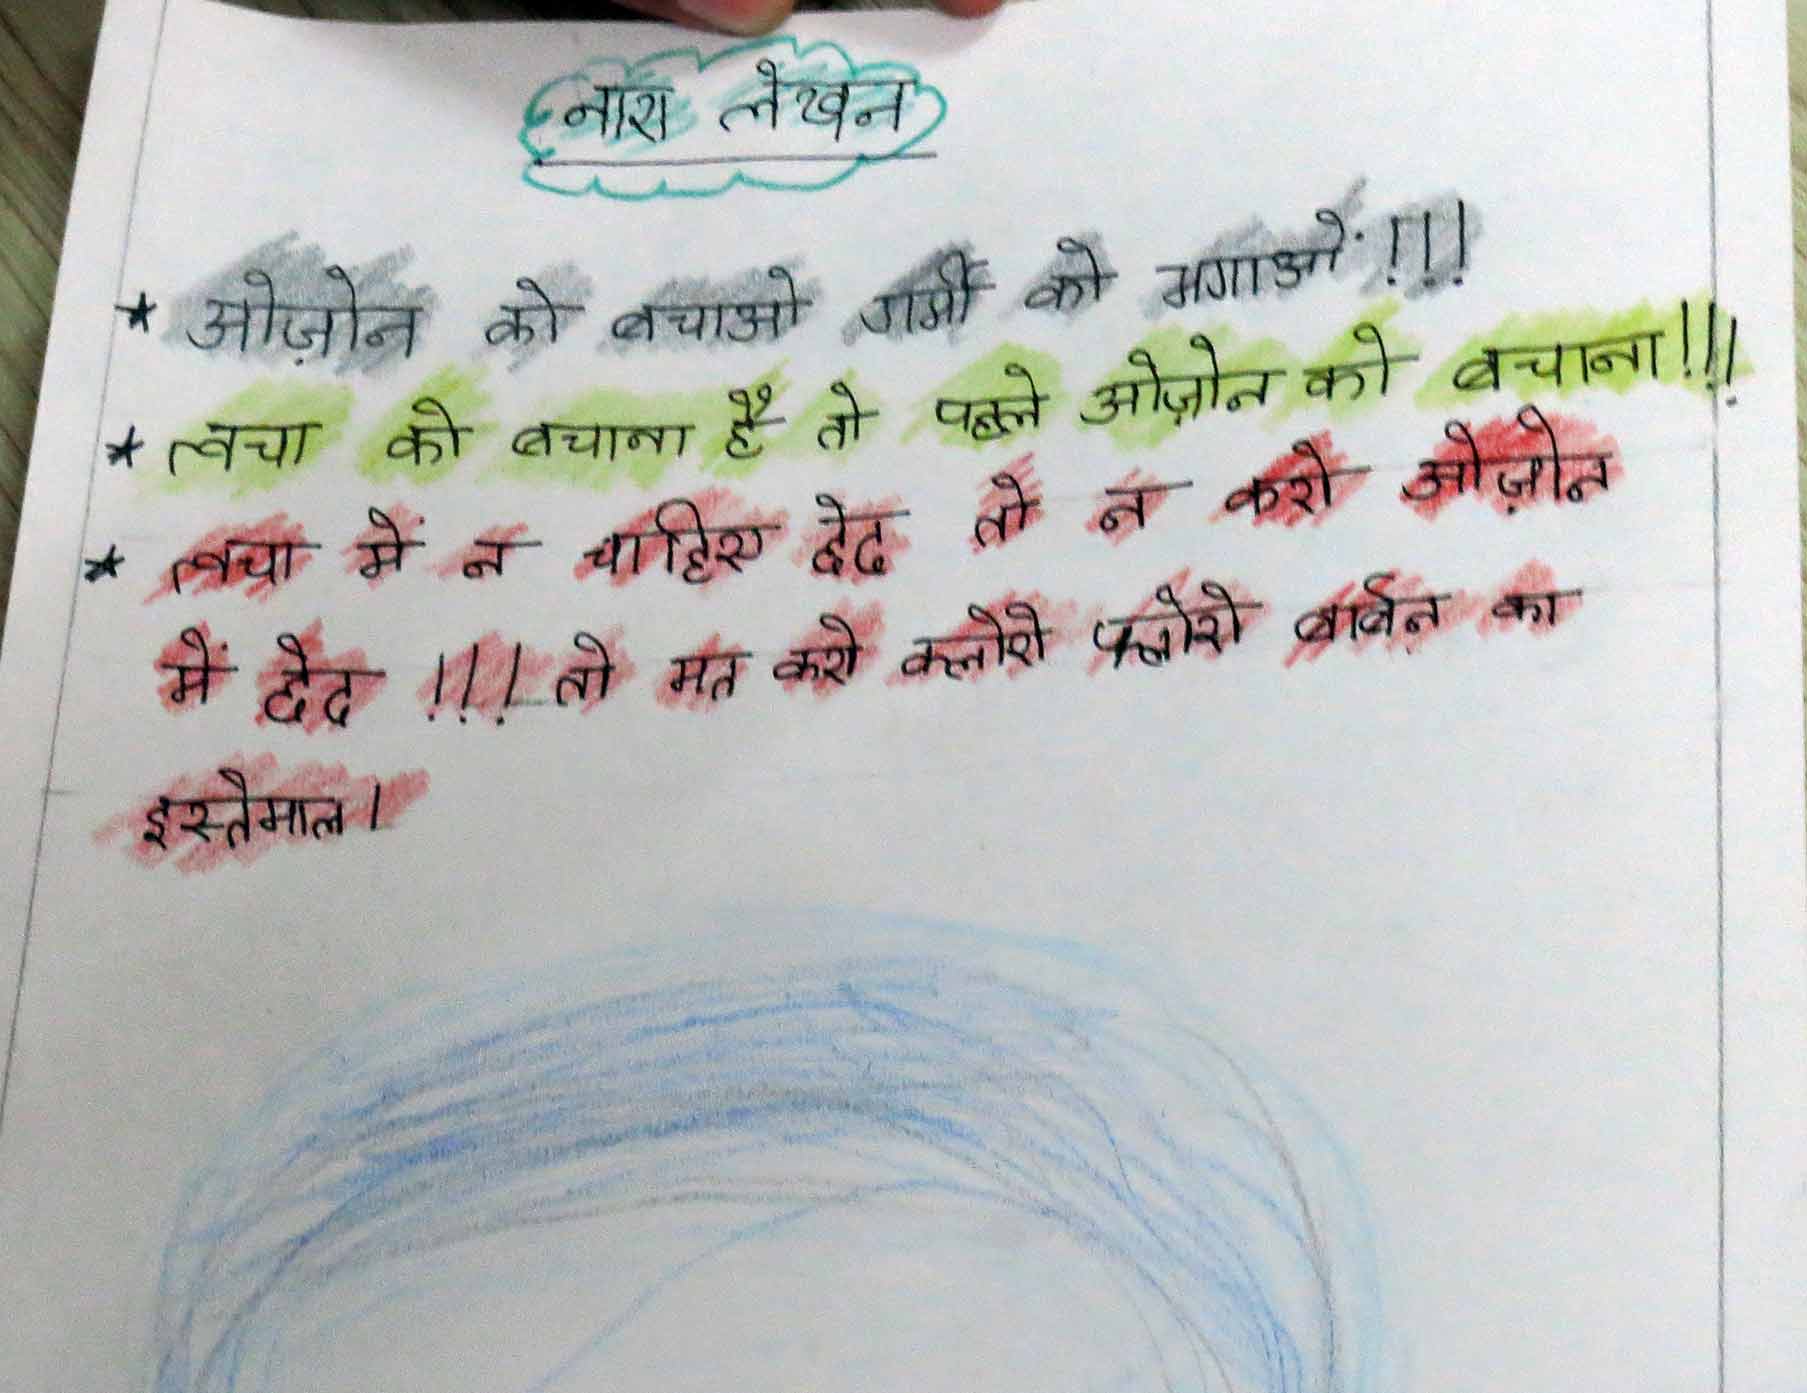 नारा लेखन
* ओज़ोन को बचाओ गर्मी को भगाओं !!!
* त्वचा को बचाना हैं तो पहले ओज़ोन को बचाना!!!
* त्वचा में न चाहिए छेद तो न करो ओज़ोन
में छेद !!! तो मत करो क्लोरो फ्लोरो कार्बन का
इस्तेमाल।